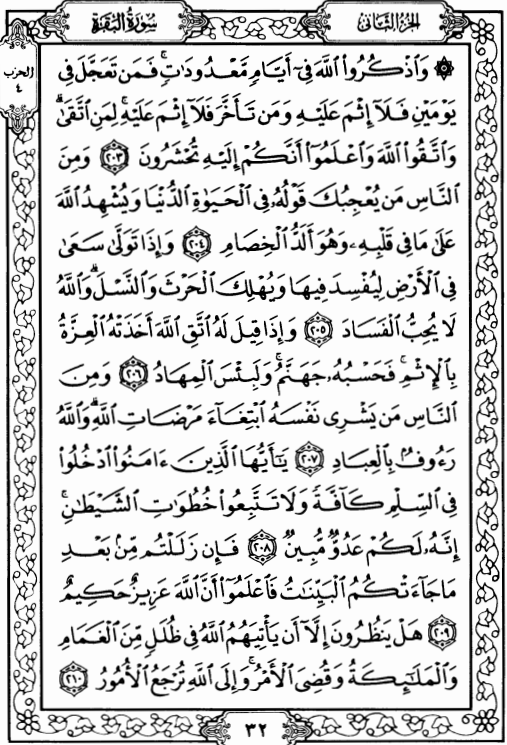 الجزء الثاني
سورة البقرة
الحزب
٤
۞ وَاذْكُرُوا اللَّهَ فِي أَيَّامٍ مَّعْدُودَاتٍ ۚ فَمَن تَعَجَّلَ فِي
يَوْمَيْنِ فَلَا إِثْمَ عَلَيْهِ وَمَن تَأَخَّرَ فَلَا إِثْمَ عَلَيْهِ ۚ لِمَنِ اتَّقَىٰ ۗ
وَاتَّقُوا اللَّهَ وَاعْلَمُوا أَنَّكُمْ إِلَيْهِ تُحْشَرُونَ ﴿٢٠٣﴾ وَمِنَ
النَّاسِ مَن يُعْجِبُكَ قَوْلُهُ فِي الْحَيَوٰةِ الدُّنْيَا وَيُشْهِدُ اللَّهَ
عَلَىٰ مَا فِي قَلْبِهِ وَهُوَ أَلَدُّ الْخِصَامِ ﴿٢٠٤﴾ وَإِذَا تَوَلَّىٰ سَعَىٰ
فِي الْأَرْضِ لِيُفْسِدَ فِيهَا وَيُهْلِكَ الْحَرْثَ وَالنَّسْلَ ۗ وَاللَّهُ
لَا يُحِبُّ الْفَسَادَ ﴿٢٠٥﴾ وَإِذَا قِيلَ لَهُ اتَّقِ اللَّهَ أَخَذَتْهُ الْعِزَّةُ
بِالْإِثْمِ ۚ فَحَسْبُهُ جَهَنَّمُ ۚ وَلَبِئْسَ الْمِهَادُ ﴿٢٠٦﴾ وَمِنَ
النَّاسِ مَن يَشْرِي نَفْسَهُ ابْتِغَاءَ مَرْضَاتِ اللَّهِ ۗ وَاللَّهُ
رَءُوفٌ بِالْعِبَادِ ﴿٢٠٧﴾ يَٰأَيُّهَا الَّذِينَ ءَامَنُوا ادْخُلُوا
فِي السِّلْمِ كَافَّةً وَلَا تَتَّبِعُوا خُطُوَٰتِ الشَّيْطَٰنِ ۚ
إِنَّهُ لَكُمْ عَدُوٌّ مُّبِينٌ ﴿٢٠٨﴾ فَإِن زَلَلْتُم مِّن بَعْدِ
مَا جَاءَتْكُمُ الْبَيِّنَٰتُ فَاعْلَمُوا أَنَّ اللَّهَ عَزِيزٌ حَكِيمٌ
﴿٢٠٩﴾ هَلْ يَنظُرُونَ إِلَّا أَن يَأْتِيَهُمُ اللَّهُ فِي ظُلَلٍ مِّنَ الْغَمَامِ
وَالْمَلَٰئِكَةُ وَقُضِيَ الْأَمْرُ ۚ وَإِلَى اللَّهِ تُرْجَعُ الْأُمُورُ ﴿٢١٠﴾
٣٢